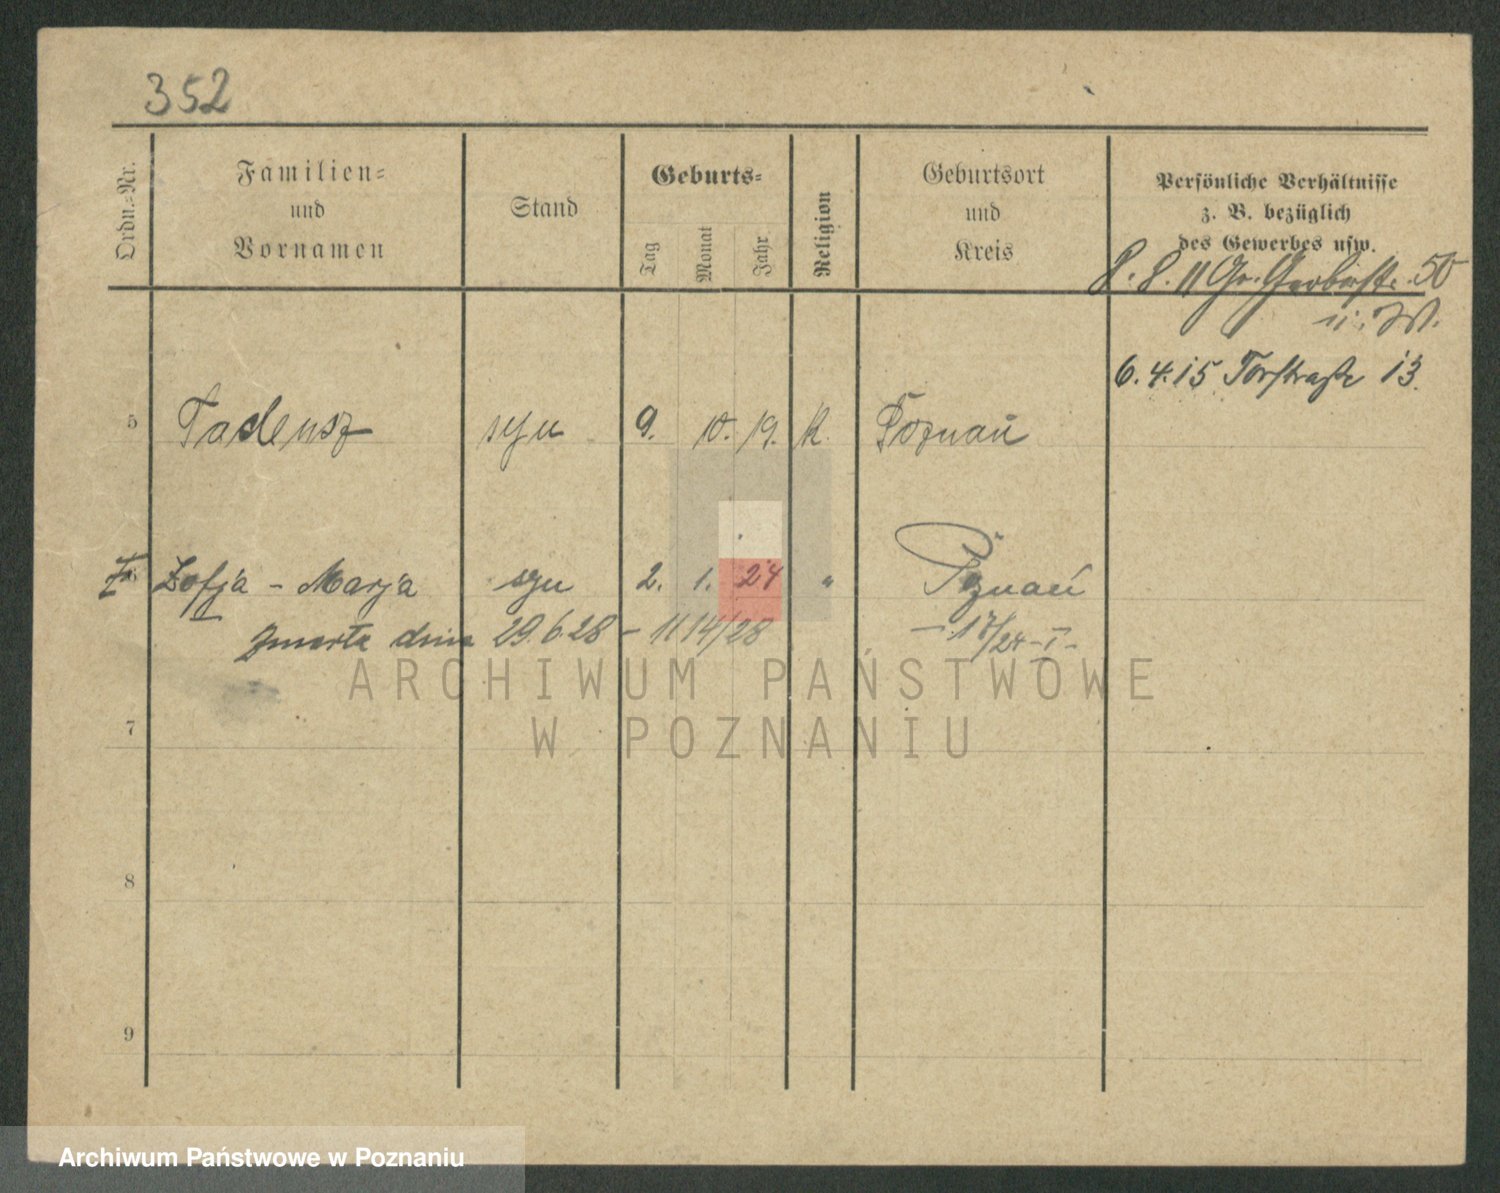 352
Ordn.-Nr.
Familien-
und
Vornamen
Stand
Geburts-
Tag
Monat
Jahr
Religion
Geburtsort
und
Kreis
Persönliche Verhältnisse
z. B. bezüglich
des Gewerbes usw.
8. 8. 11 Gr. Gerberstr. 50
u. W.
6. 4. 15 Torstraße 13.
5 Tadeusz syn 9. 10. 19. K. Poznań
6 Zofja - Marja 2. 1. 24 " Poznań
zmarła dnia 29.6.28 - 1114/28 - 17/24 - I -
7
8
9
ARCHIWUM PAŃSTWOWE
W POZNANIU
Archiwum Państwowe w Poznaniu